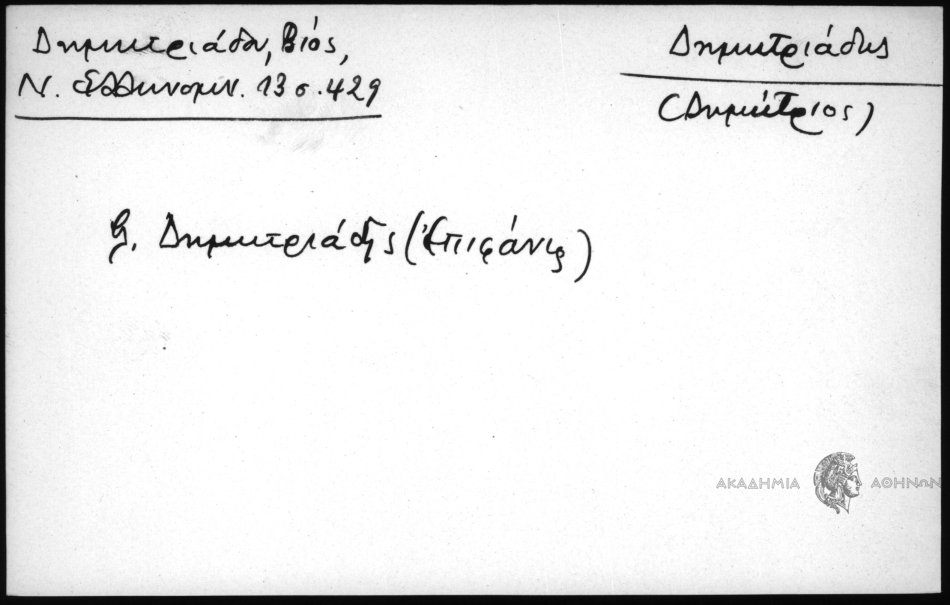 Δημητριάδου, Βίος,
Ν. Ἑλληνομν. 13 σ. 429
Δημητριάδης
(Δημήτριος)
Δημητριάδης (Ἐπιφάνης)
ΑΚΑΔΗΜΙΑ ΑΘΗΝΩΝ